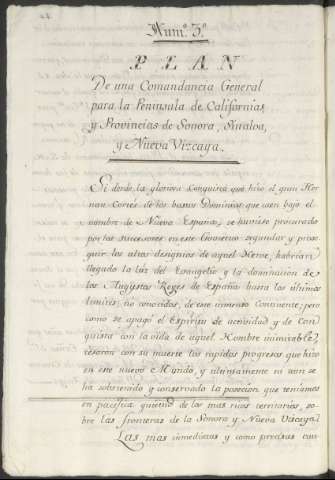 Num.º 3.º
PLAN
De una Comandancia General
para la Peninsula de Californias,
y Provincias de Sonora, Sinaloa,
y Nueva Vizcaya.
Si desde la gloriosa conquista que hizo el gran Her-
nan Cortés de los bastos Dominios que caen bajo el
nombre de Nueva España, se huviese procurado
por los succesores en este Govierno segundar y prose-
guir los altos designios de aquel Heroe, habrian
llegado la luz del Evangelio y la dominacion de
los Augustos Reyes de España hasta los ultimos
limites, no conocidos, de este inmenso Continente; pero
como se apagó el Espiritu de actividad y de con-
quista con la vida de aquel Hombre inimitable,
cesaron con su muerte los rapidos progresos que hizo
en este nuevo Mundo, y ultimamente ni aun se
ha sobstenido y conservado la posecion que teniamos
en pacifica quietud de los mas ricos territorios, so-
bre las fronteras de la Sonora y Nueva Vizcaya.
Las mas inmediatas y como precisas cau-